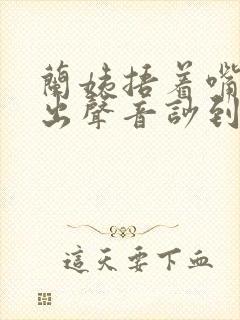 蘭姨捂着嘴
出聲音訬到
這天要下血